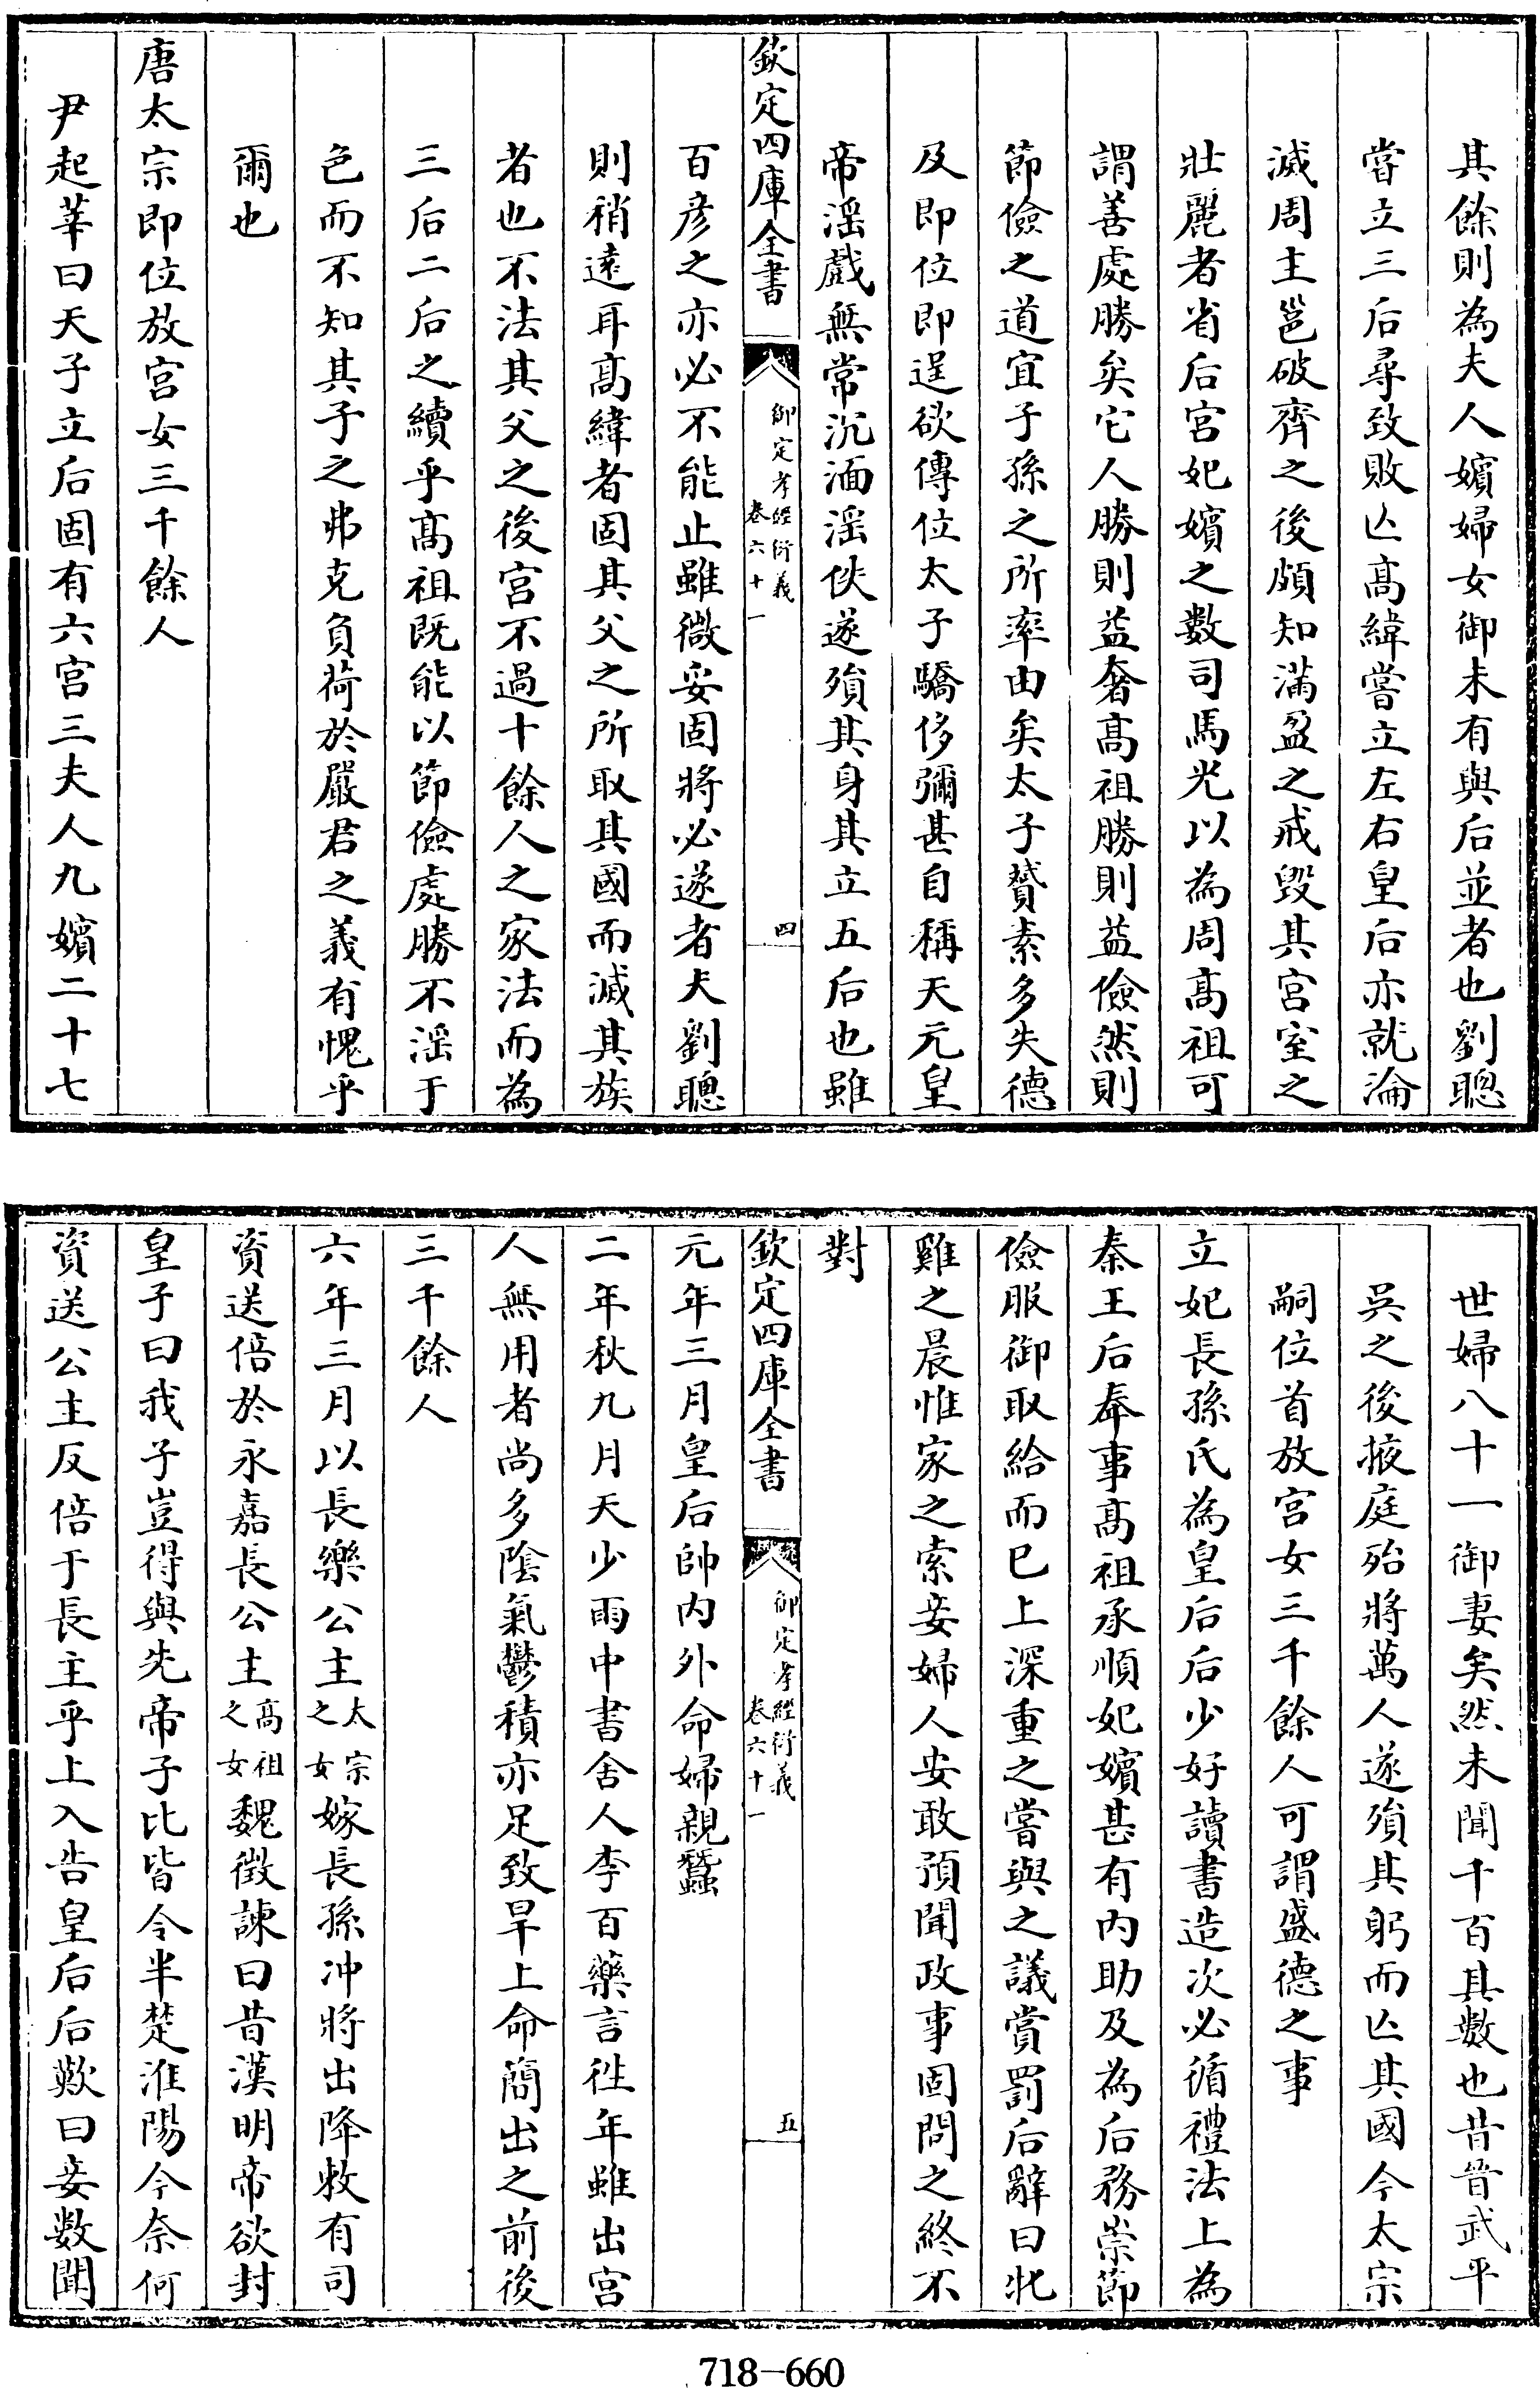 其餘則為夫人嬪婦女御未有與后並者也劉聰
嘗立三后尋致敗亾高緯嘗立左右皇后亦就淪
滅周主邕破齊之後頗知滿盈之戒毁其宫室之
壯麗者省后宫妃嬪之數司馬光以為周高祖可
謂善處勝矣它人勝則益奢高祖勝則益儉然則
節儉之道宜子孫之所率由矣太子贇素多失德
及即位即逞欲傳位太子驕侈彌甚自稱天元皇
帝滛戲無常沉湎滛佚遂殞其身其立五后也雖
欽定四庫全書
御定孝經衍義
卷六十一
四
百彦之亦必不能止雖微妥固將必遂者夫劉聰
則稍遠耳高緯者固其父之所取其國而滅其族
者也不法其父之後宫不過十餘人之家法而為
三后二后之續乎高祖既能以節儉處勝不滛于
色而不知其子之弗克負荷於嚴君之義有愧乎
爾也
唐太宗即位放宫女三千餘人
尹起莘曰天子立后固有六宫三夫人九嬪二十七
世婦八十一御妻矣然未聞千百其數也昔晉武平
吳之後掖庭殆將萬人遂殞其躬而亾其國今太宗
嗣位首放宫女三千餘人可謂盛德之事
立妃長孫氏為皇后后少好讀書造次必循禮法上為
秦王后奉事高祖承順妃嬪甚有内助及為后務崇節
儉服御取給而已上深重之嘗與之議賞罰后辭曰牝
雞之晨惟家之索妾婦人安敢預聞政事固問之終不
對
欽定四庫全書
御定孝經衍義
卷六十一
五
元年三月皇后帥内外命婦親蠶
二年秋九月天少雨中書舍人李百藥言徃年雖出宫
人無用者尚多陰氣鬱積亦足致旱上命簡出之前後
三千餘人
六年三月以長樂公主太宗之女嫁長孫冲將出降敕有司
資送倍於永嘉長公主高祖之女魏徵諫曰昔漢明帝欲封
皇子曰我子豈得與先帝子比皆令半楚淮陽今奈何
資送公主反倍于長主乎上入告皇后后歎曰妾數聞
718-660